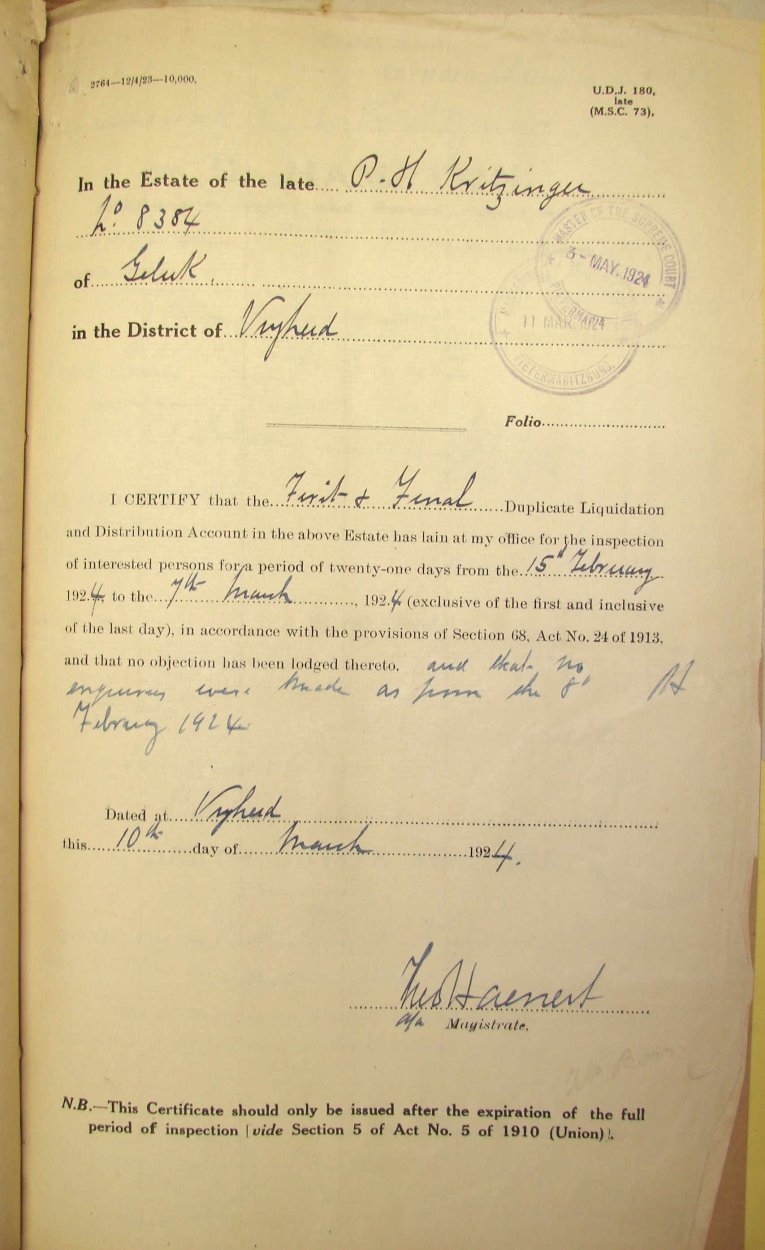 2764—12/4/23—10,000.
U.D.J. 180,
late
(M.S.C. 73).
In the Estate of the late P. H Kritzinger
No. 8384
of Geluk.
in the District of Vryheid
MASTER OF THE SUPREME COURT
6 - MAY. 1924
11 MAR. 1924
PIETERMARITZBURG.
Folio
I CERTIFY that the First & Final Duplicate Liquidation
and Distribution Account in the above Estate has lain at my office for the inspection
of interested persons for a period of twenty-one days from the 15th February
1924. to the 7th March, 1924 (exclusive of the first and inclusive
of the last day), in accordance with the provisions of Section 68, Act No. 24 of 1913,
and that no objection has been lodged thereto. and that no
enquiries were made as from the 8th
February 1924
Dated at Vryheid
this 10th day of March 1924.
Haenert
a/a Magistrate.
N.B.—This Certificate should only be issued after the expiration of the full
period of inspection [vide Section 5 of Act No. 5 of 1910 (Union)].